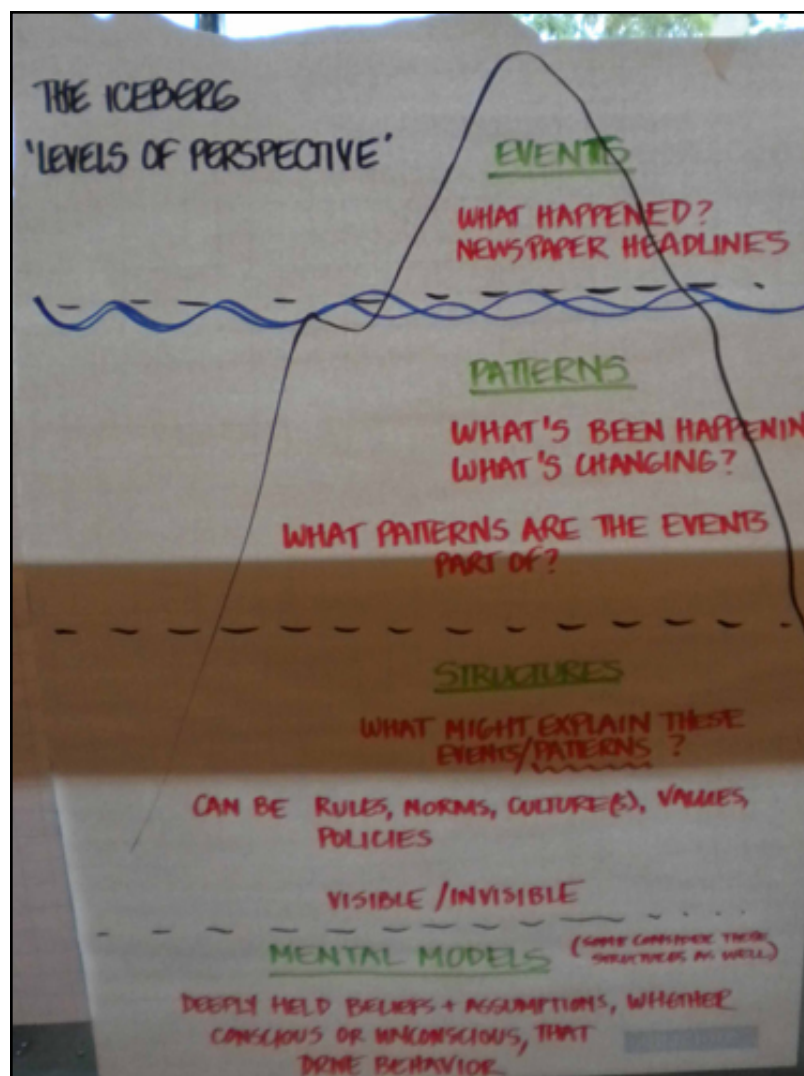 THE ICEBERG
'LEVELS OF PERSPECTIVE'
EVENTS
WHAT HAPPENED?
NEWSPAPER HEADLINES
PATTERNS
WHAT'S BEEN HAPPENIN
WHAT'S CHANGING?
WHAT PATTERNS ARE THE EVENTS
PART OF?
STRUCTURES
WHAT MIGHT EXPLAIN THESE
EVENTS/PATTERNS?
CAN BE RULES, NORMS, CULTURE(S), VALUES,
POLICIES
VISIBLE/INVISIBLE
MENTAL MODELS (SOME CONSIDER THESE
STRUCTURES AS WELL)
DEEPLY HELD BELIEFS + ASSUMPTIONS, WHETHER
CONSCIOUS OR UNCONSCIOUS, THAT
DRIVE BEHAVIOR